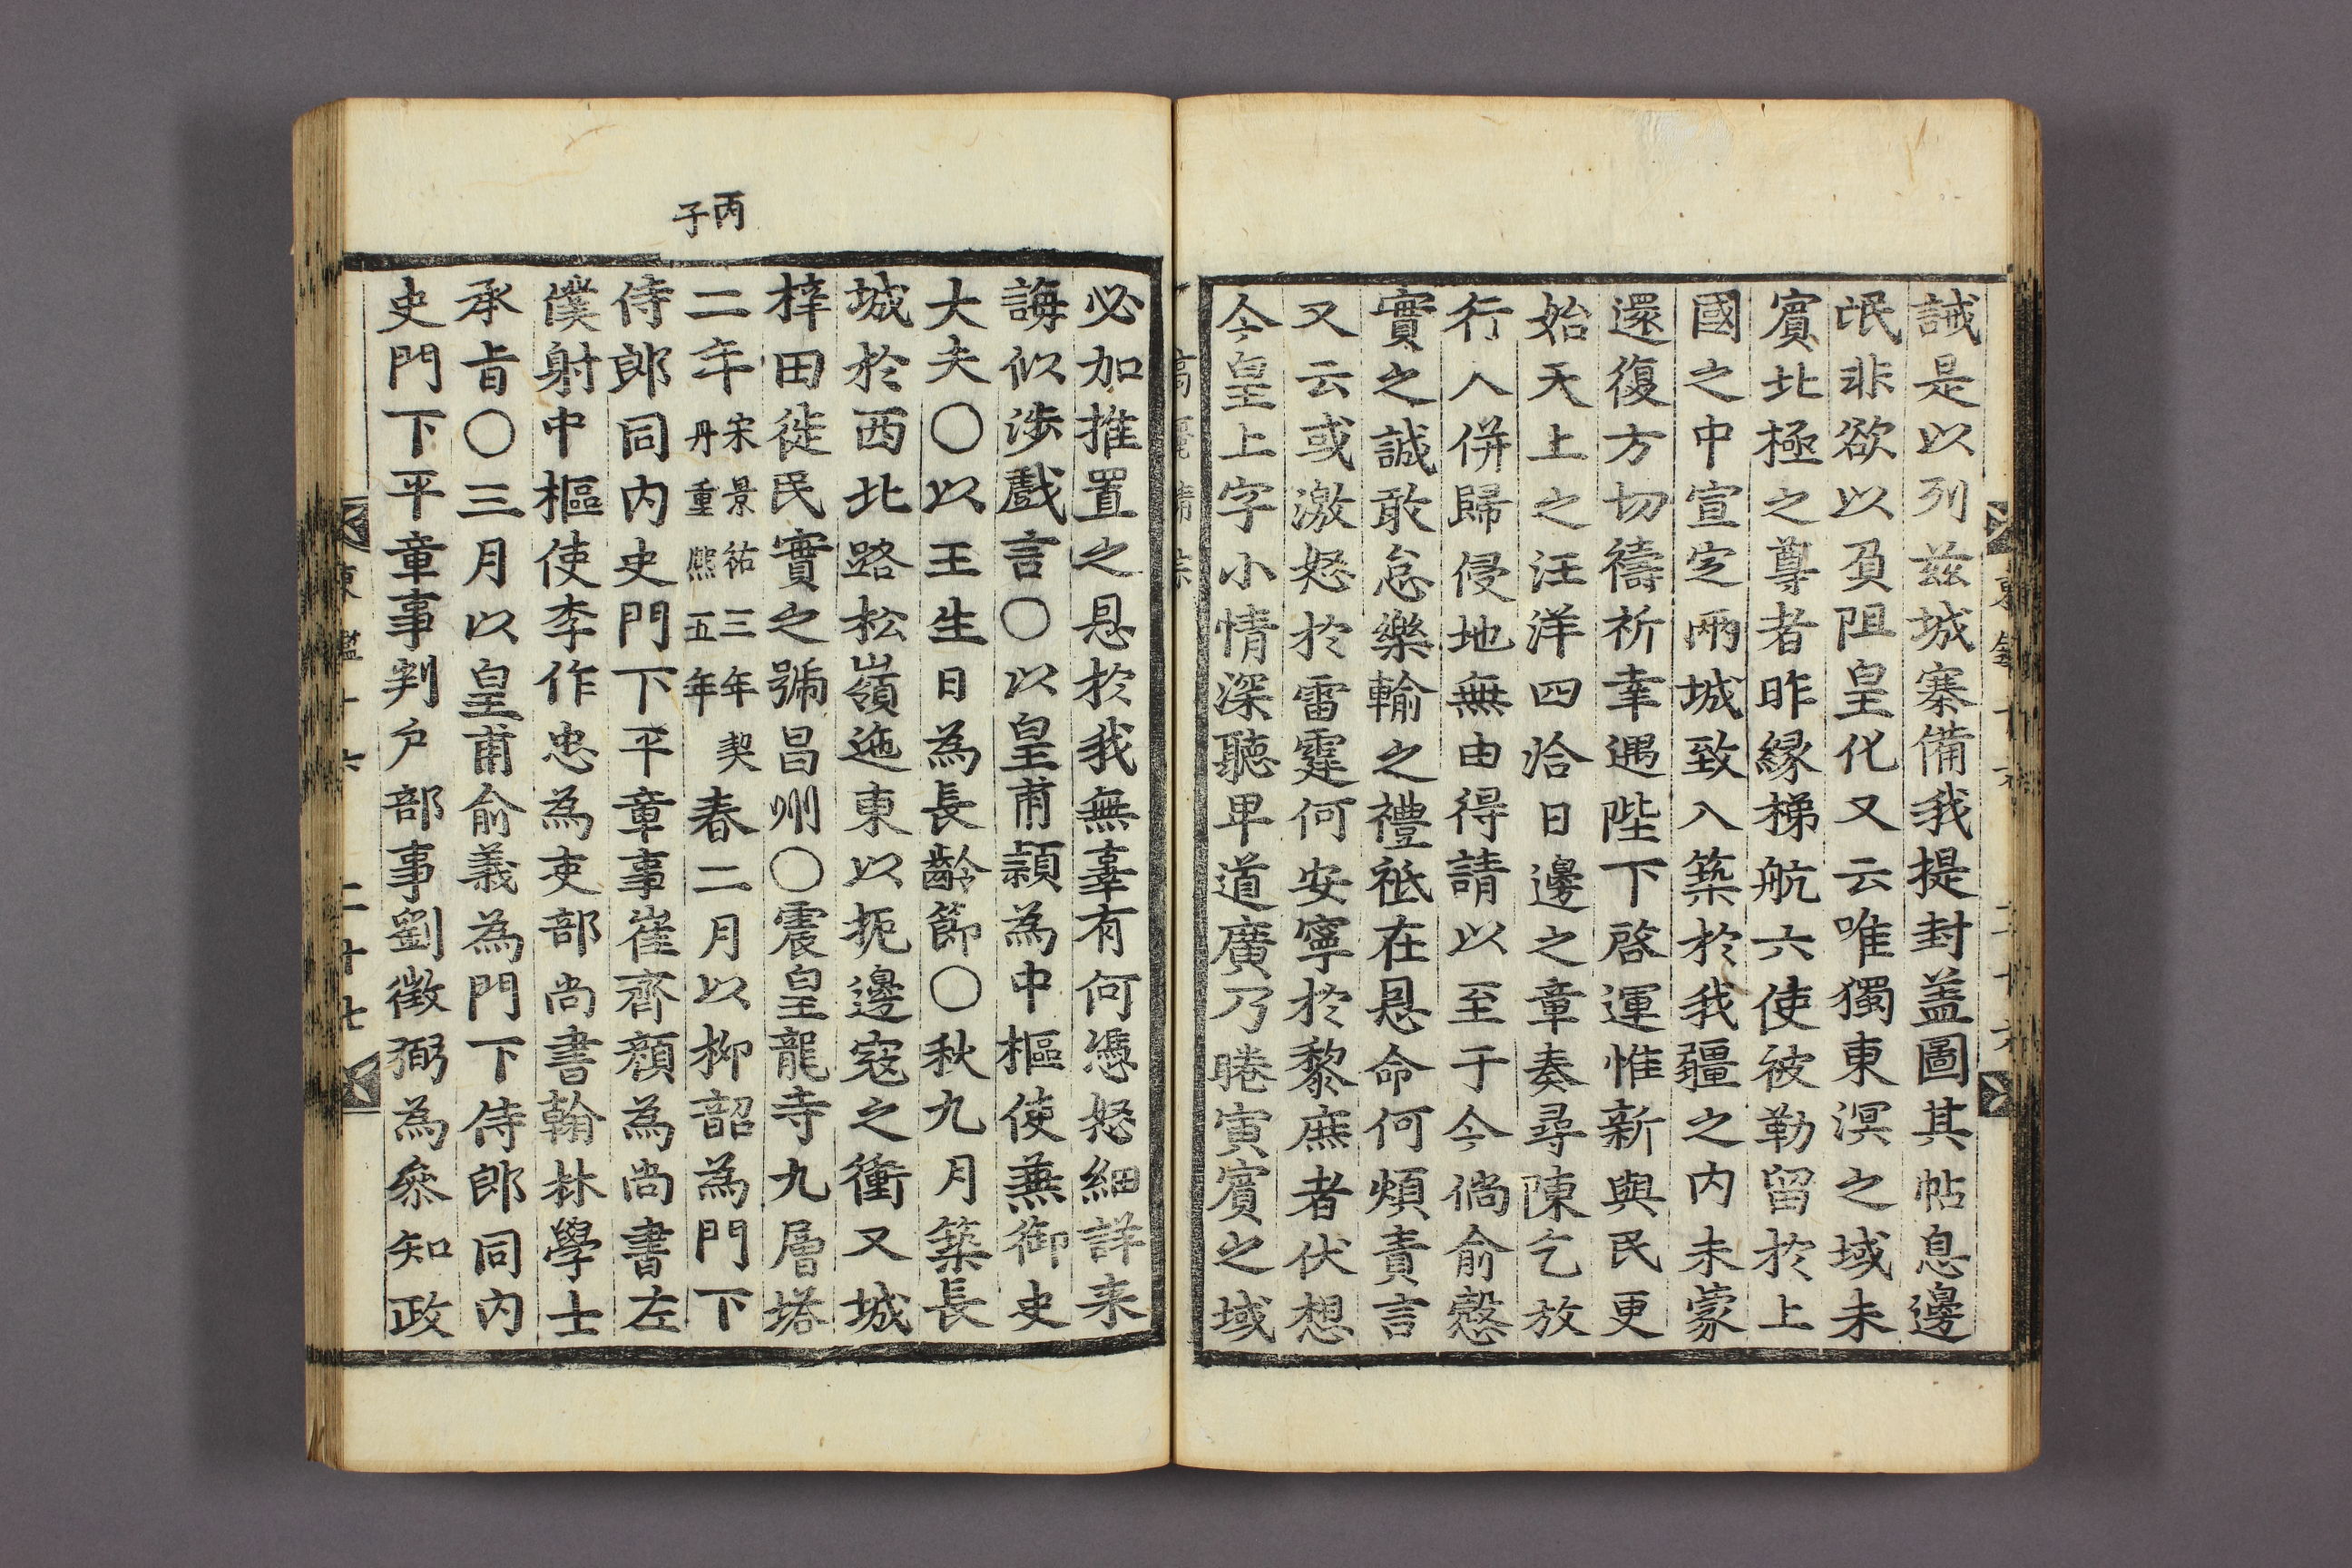 誡是以列兹城寨備我提封盖圖其帖息邊
氓非欲以負阻皇化又云唯獨東溟之域未
賓北極之尊者昨緣梯航六使被勒留於上
國之中宣定兩城致入築於我疆之內未蒙
還復方切禱祈幸遇陛下啓運惟新與民更
始天上之汪洋四洽日邊之章奏尋陳乞放
行人併歸侵地無由得請以至于今倘俞慤
實之誠敢怠樂輸之禮祗在恩命何煩責言
又云或激怒於雷霆何安寧於黎庶者伏想
今皇上字小情深聽卑道廣乃睠寅賓之域
必加推置之恩於我無辜有何憑怒細詳来
誨似涉戲言〇以皇甫頴為中樞使兼御史
大夫〇以王生日為長齡節〇秋九月築長
城於西北路松嶺迤東以扼邊寇之衝又城
梓田徙民實之號昌州〇震皇龍寺九層塔
丙子
二年宋景祐三年契丹重熈五年春二月以柳韶為門下
侍郎同內史門下平章事崔齊顏為尚書左
僕射中樞使李作忠為吏部尚書翰林學士
承旨〇三月以皇甫俞義為門下侍郎同內
史門下平章事判戶部事劉徵弼為叅知政
東 十六 二十七